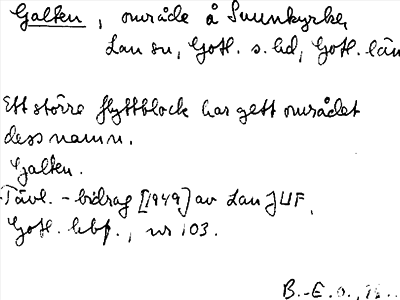 Galten, område å Sunnkyrke,
Lau sn, Gotl. s. hd, Gotl. län
Ett större flyttblock har gett området
dess namn.
Galten.
Tävl.-bidrag [1949] av Lau JUF.
Gotl. hbf., nr 103.
B.-E. O.,